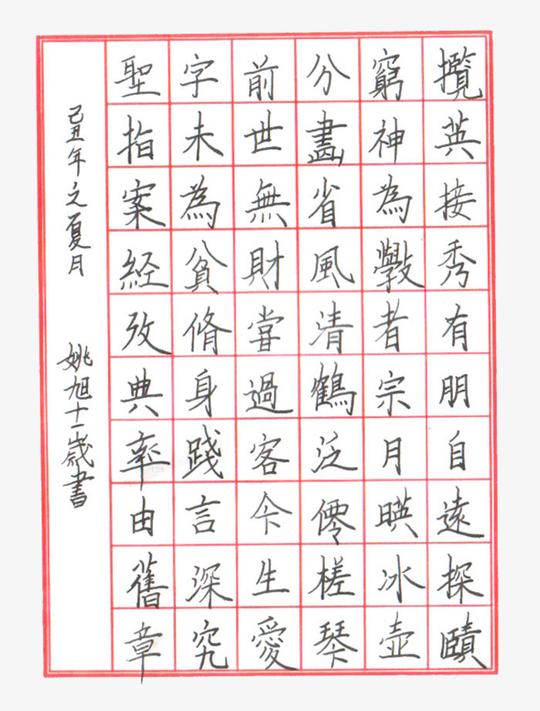 攬英接秀有朋自遠探賾
窮神為斆者宗月暎冰壺
分畫省風清鶴泛僊槎琴
前世無財甞過客今生愛
字未為貧脩身踐言深究
聖指案經攷典率由舊章
己丑年之夏月 姚旭十一歲書